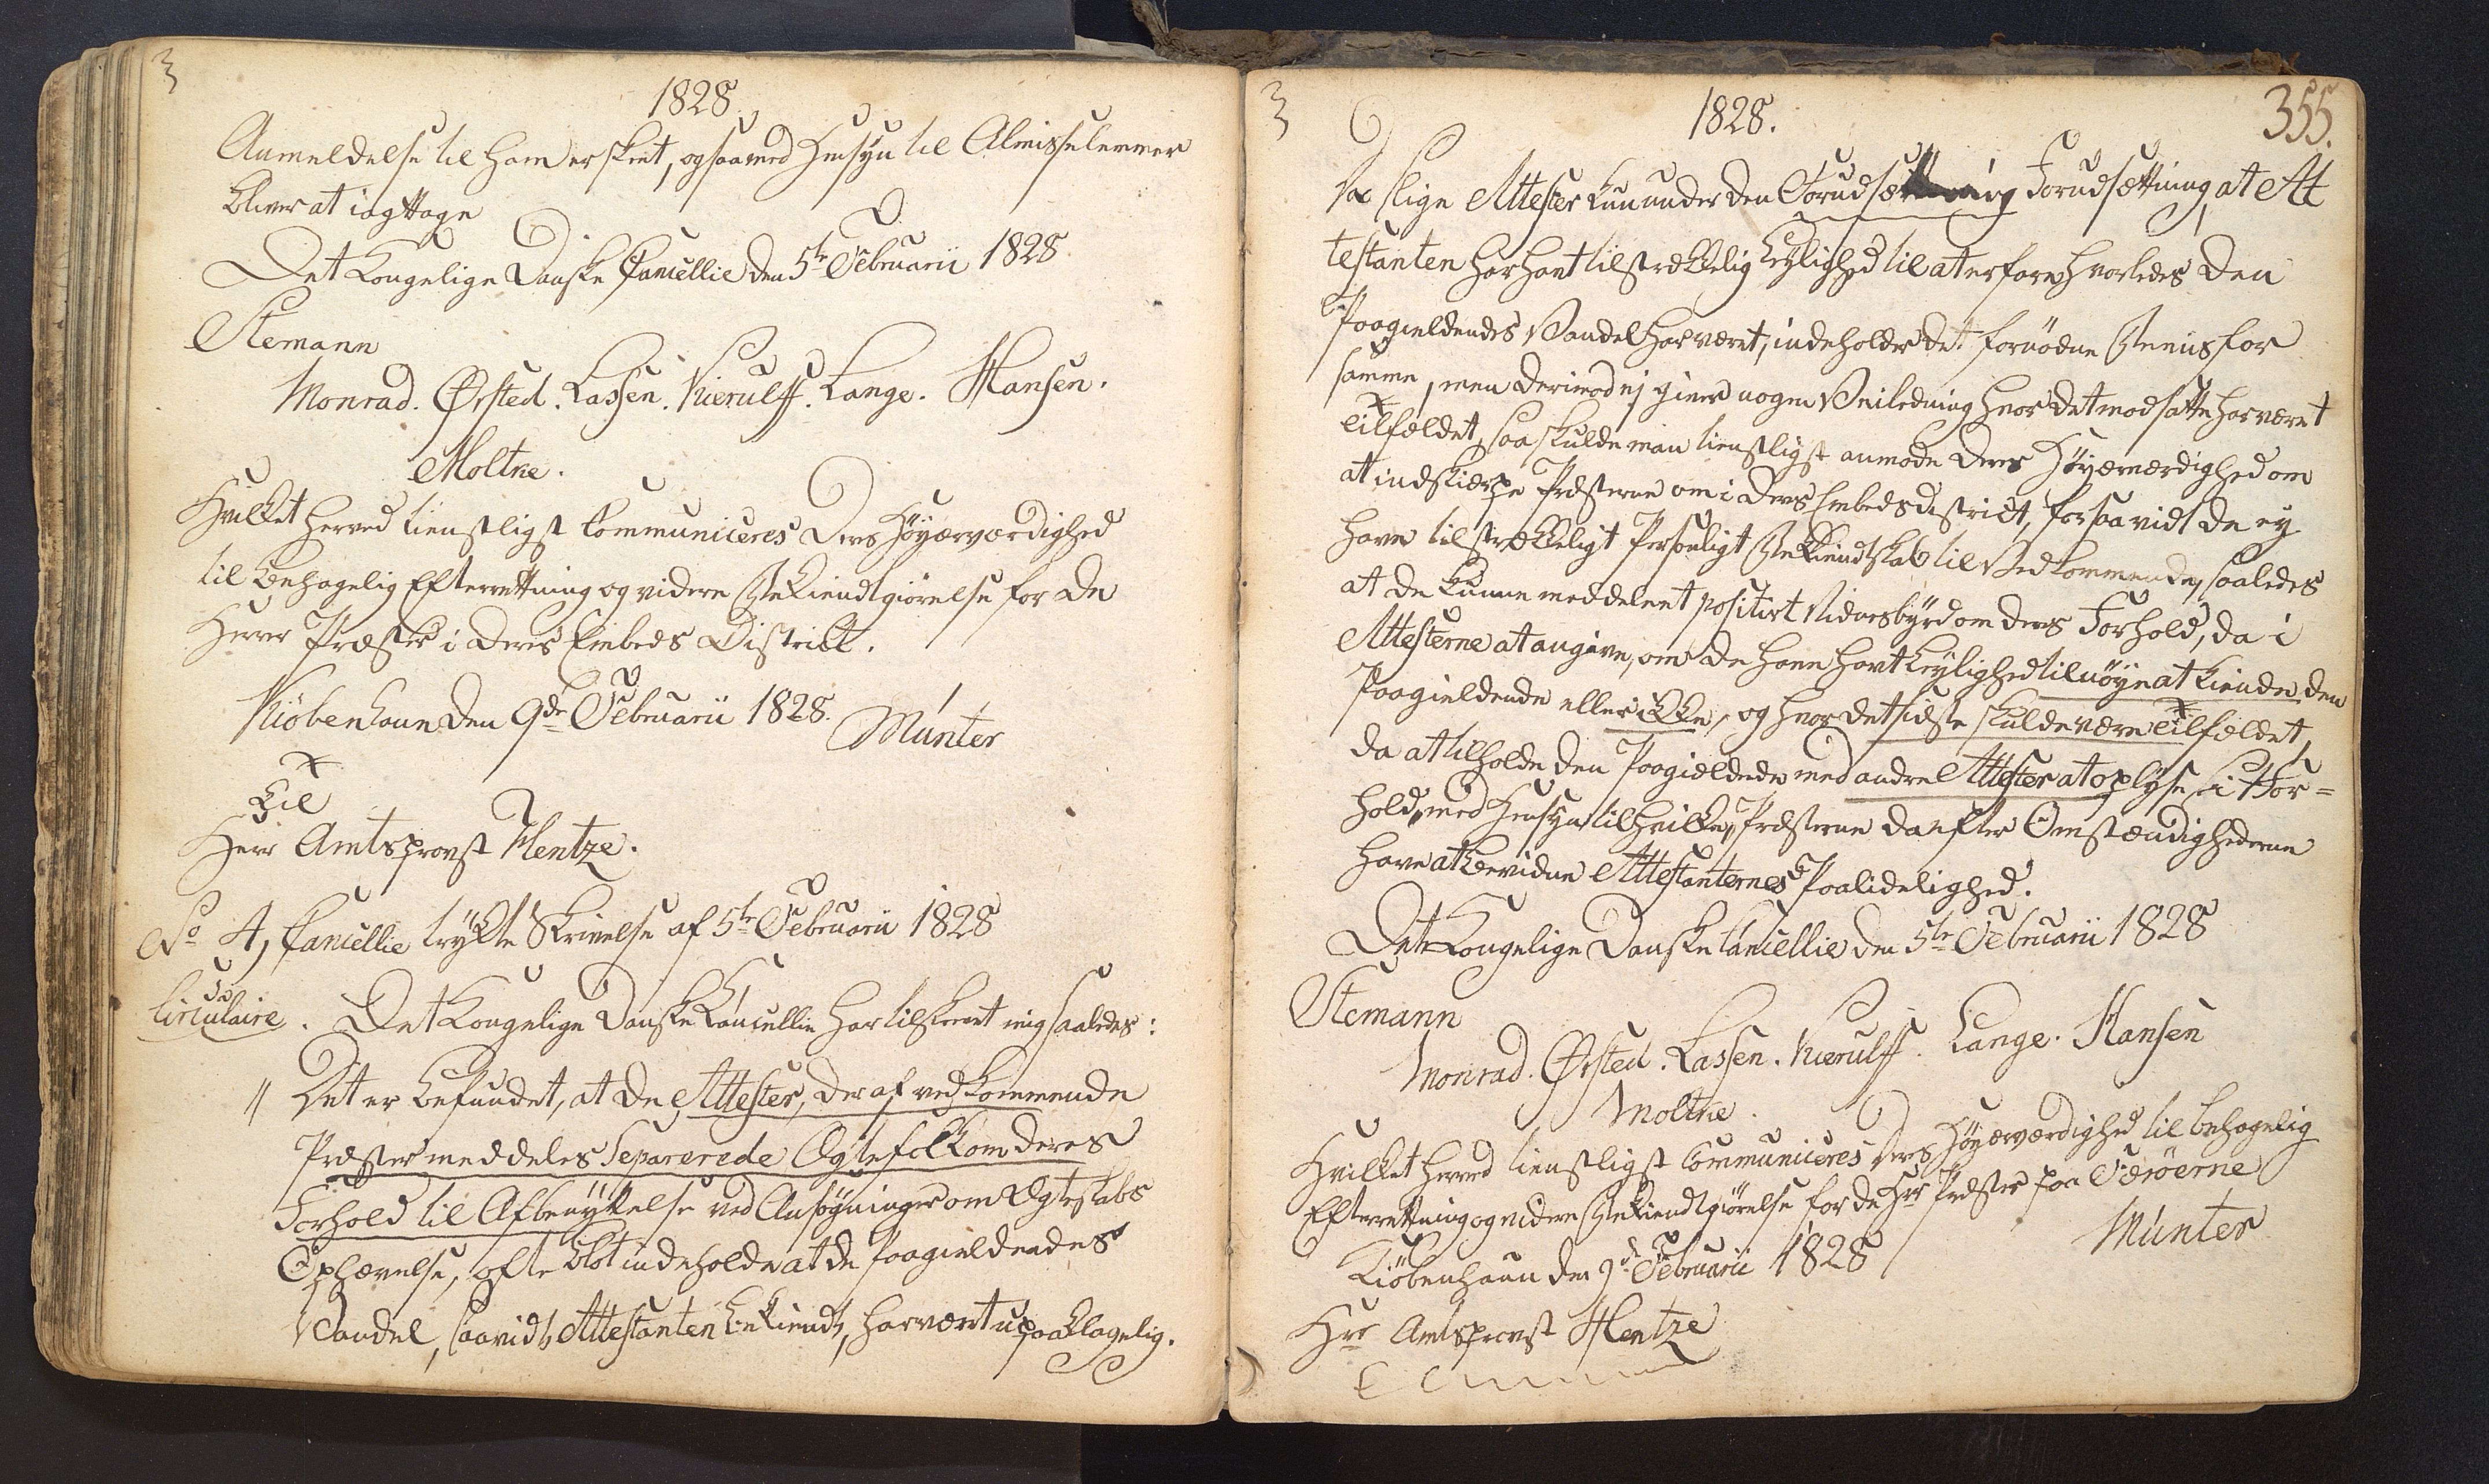 3
1828
Anmeldelse til ham er skeet, ogsaa med Hensyn til Almisselemmer
bliver at iagttage
Det Kongelige Danske Cancellie den 5te Februarii 1828
Stemann
Monrad. Ørsted. Lassen. Kierulff. Lange. Hansen.
Moltke.
Hvilket herved tienstligst Communiceres Deres Høyærværdighed
til behagelig Efterretning og videre Bekiendtgiørelse for de
Herrer Præster i Deres Embeds District.
Kiöbenhavn den 9de Februarii 1828.
Münter
Til
Herr Amtsprovst Hentze.
No 4, Cancellie trykte Skrivelse af 5te Februarii 1828
Circulaire. Det Kongelige Danske Cancellie har tilskrevet mig saaledes:
" Det er befundet, at de Attester, der af vedkommende
Præster meddeles Separerede Ægtefolk om deres
Forhold til Afbenyttelse ved Ansøgninger om Ægteskabs
Ophævelse, ofte blot indeholde at de Paagieldendes
Vandel, saavidt Attestanten bekiendt, har været upaaklagelig.
3
1828.
355.
Da slige Attester kun under den Forudsætning Forudsætning, at At
testanten har havt tilstrækkelig Leylighed til at erfare, hvorledes den
Paagieldendes Vandel har været, indeholder det fornödne Beviis for
samme, men derimod ej giver nogen Veiledning hvor det modsatte har været
Tilfældet, saa skulde man tienstligst anmode Deres Höyærværdighed om
at indskiærpe Præsterne om i Deres Embedsdistrict, forsaavidt de ey
have tilstrækkeligt Personligt Bekiendtskab til Vedkommende, saaledes
at de kunne meddele et positivt Vidnesbyrd om deres Forhold, da i
Attesterne at angive, om de have havt Leylighed til nöye at kiende den
Paagieldende eller ikke, og hvor det sidste skulde være Tilfældet,
da at tilholde den Paagieldende med andre Attester at oplyse sit For=
hold, med Hensyn til hvilke Præsterne da efter Omstændighederne
have at bevidne Attestanternes Paalidelighed.
Det Kongelige Danske Cancellie den 5te Februarii 1828
Stemann
Monrad. Ørsted. Lassen. Kierulff. Lange. Hansen
Moltke.
Hvilket herved tienstligst Communiceres Deres Höyærværdighed til behagelig
Efterretning og videre Bekiendtgiørelse for de Hrr Præster paa Færöerne
Kiöbenhavn den 9de Februarii 1828
Münter
Hrr Amtsprovst Hentze